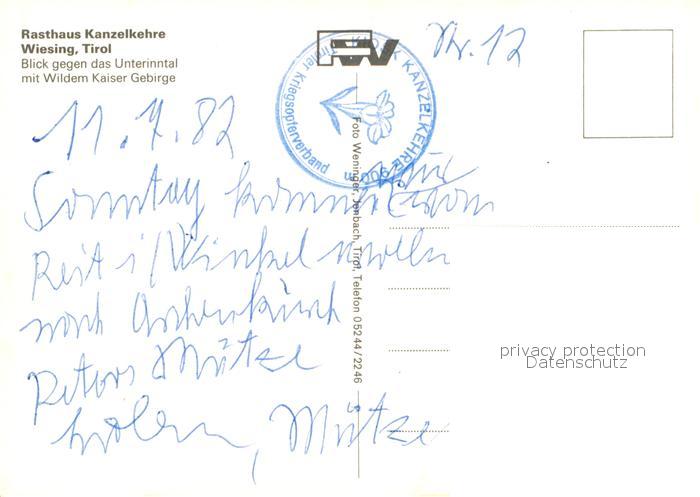 Rasthaus Kanzelkehre
Wiesing, Tirol
Blick gegen das Unterinntal
mit Wildem Kaiser Gebirge
KIOSK KANZELKEHRE
Tiroler Kriegsopferverband
Nr. 12
11.7.82
Sonntag kommen wir
vom
Reit i/Winkel wollen
nach
Peters Mütze
holen, Mütze
Foto Weninger, Jenbach, Tirol, Telefon 05244/2246
privacy protection
Datenschutz